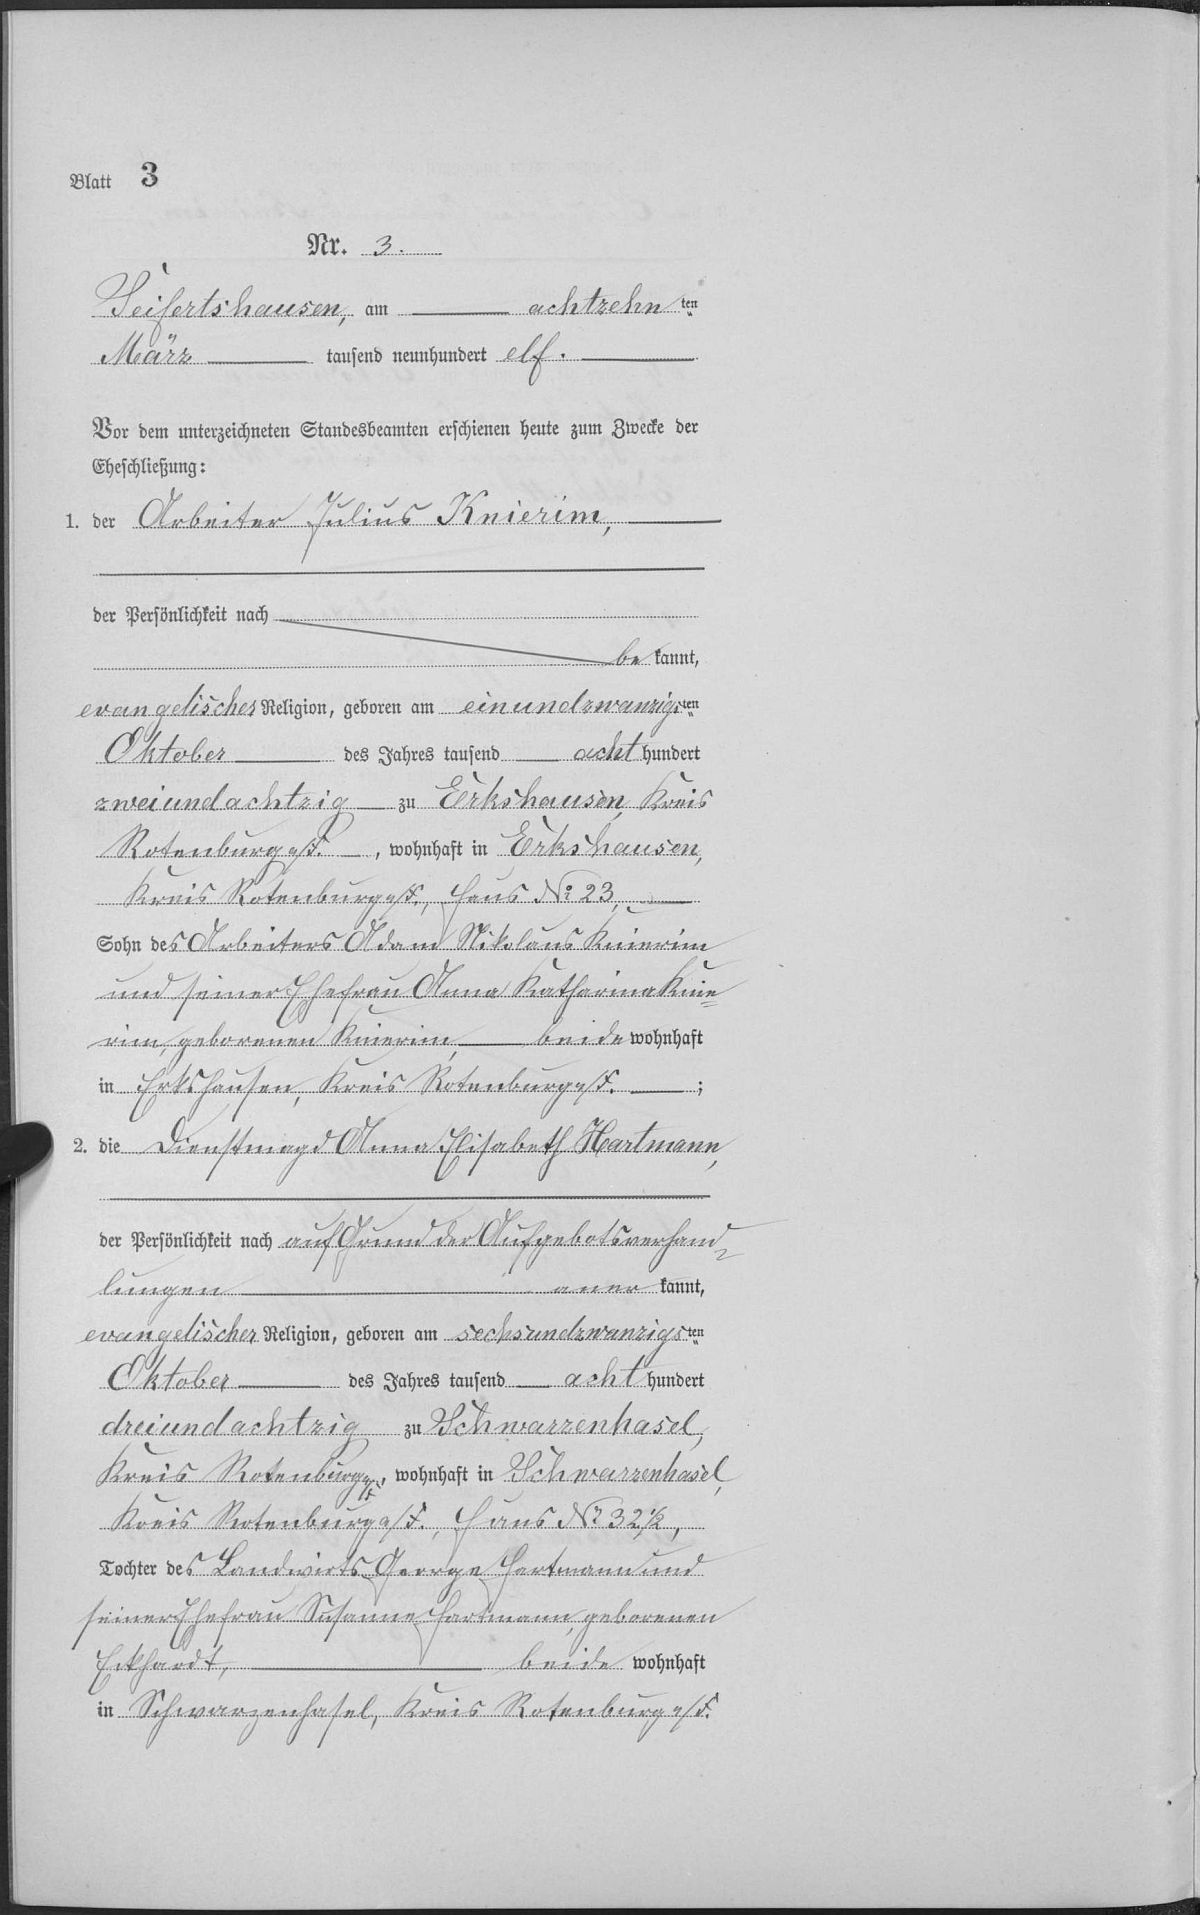 Blatt 3
Nr. 3.
Seifertshausen, am achtzehn ten
März tausend neunhundert elf.
Vor dem unterzeichneten Standesbeamten erschienen heute zum Zwecke der
Eheschließung:
1. der Arbeiter Julius Knierim,
der Persönlichkeit nach
be kannt,
evangelischer Religion, geboren am einundzwanzigsten
Oktober des Jahres tausend acht hundert
zweiundachtzig zu Erkshausen, Kreis
Rotenburg a/F., wohnhaft in Erkshausen,
Kreis Rotenburg a/F., Haus No 23,
Sohn des Arbeiters Adam Nikolaus Knierim
und seiner Ehefrau Anna Katharina Knie=
rim, geborenen Knierim, beide wohnhaft
in Erkshausen, Kreis Rotenburg a/F. ;
2. die Dienstmagd Anna Elisabeth Hartmann,
der Persönlichkeit nach auf Grund der Aufgebotsverhand=
lungen aner kannt,
evangelischer Religion, geboren am sechsundzwanzigsten
Oktober des Jahres tausend acht hundert
dreiundachtzig zu Schwarzenhasel,
Kreis Rotenburg a/F., wohnhaft in Schwarzenhasel,
Kreis Rotenburg a/F., Haus No 32 1/2,
Tochter des Landwirts George Hartmann und
seiner Ehefrau Susanne Hartmann, geborenen
Eckhardt, beide wohnhaft
in Schwarzenhasel, Kreis Rotenburg a/F.